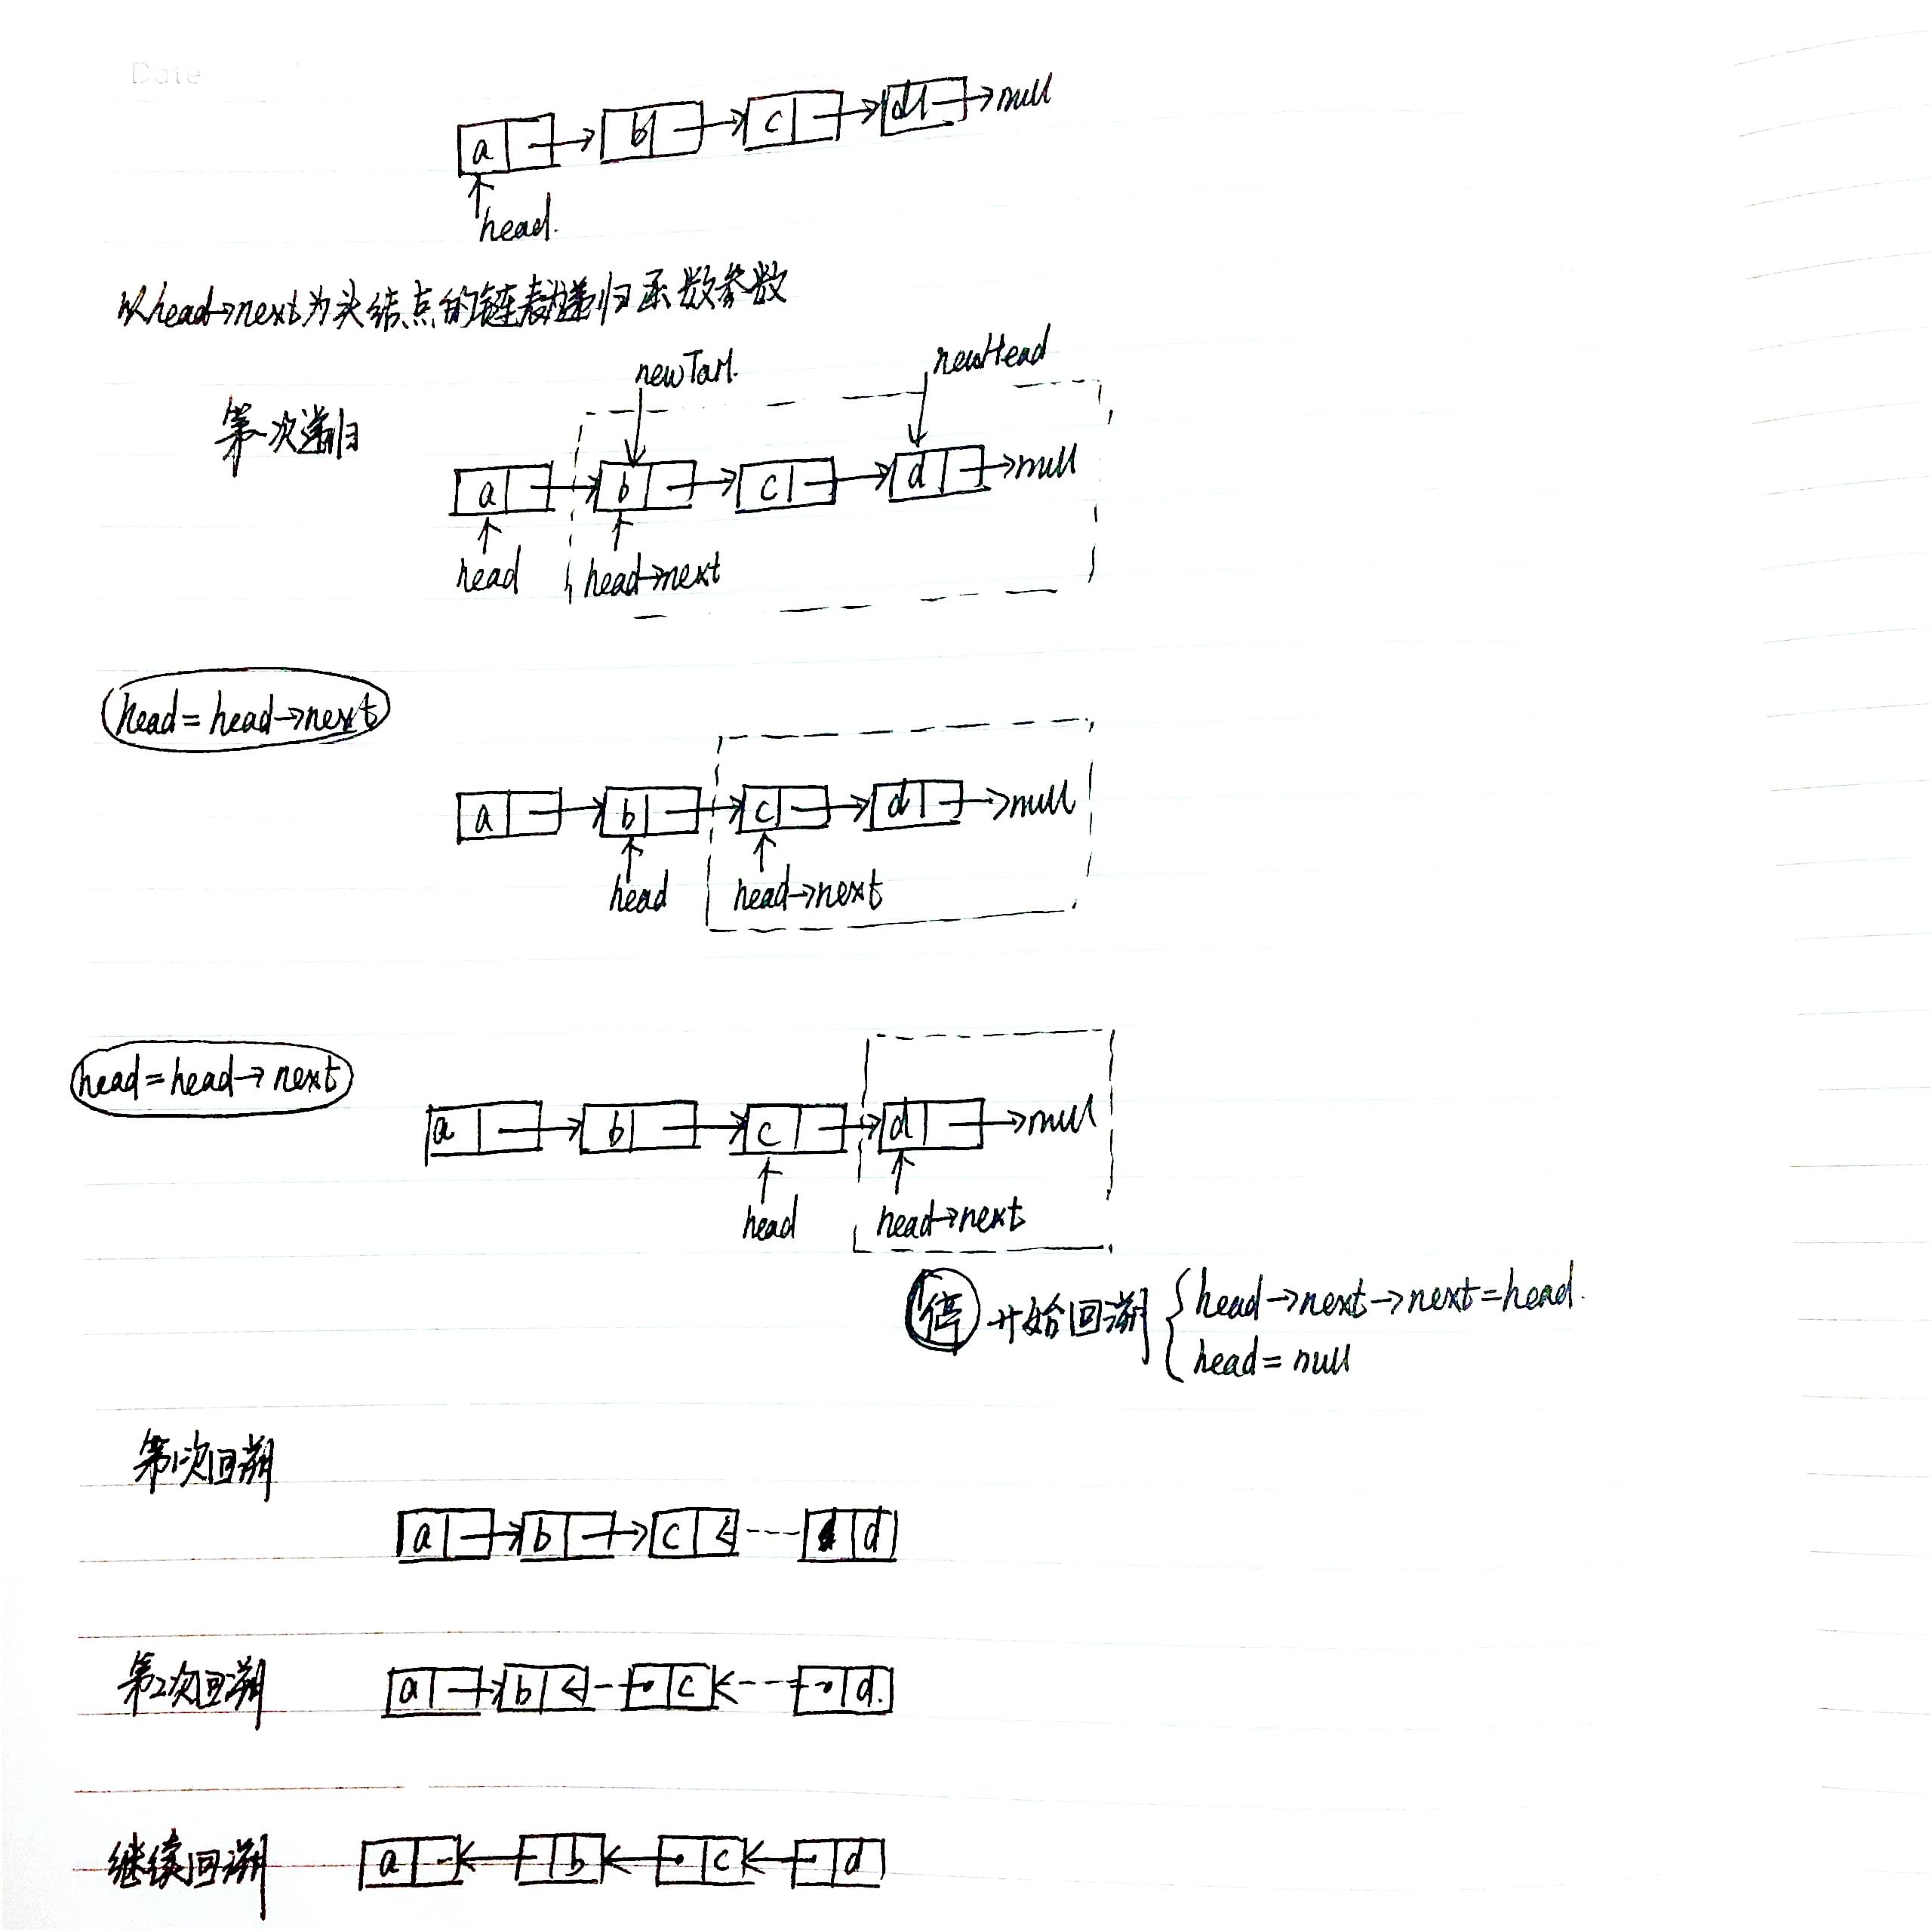 Date
a b c d null
head.
以head→next为头结点的链表递归函数参数
newTail.
newHead
第一次递归
a b c d null
head head→next
head=head→next
a b c d null
head head→next
head=head→next
a b c d null
head head→next
停 开始回溯 { head→next→next=head.
head=null
第1次回溯
a b c d
第2次回溯
a b c d.
继续回溯
a b c d